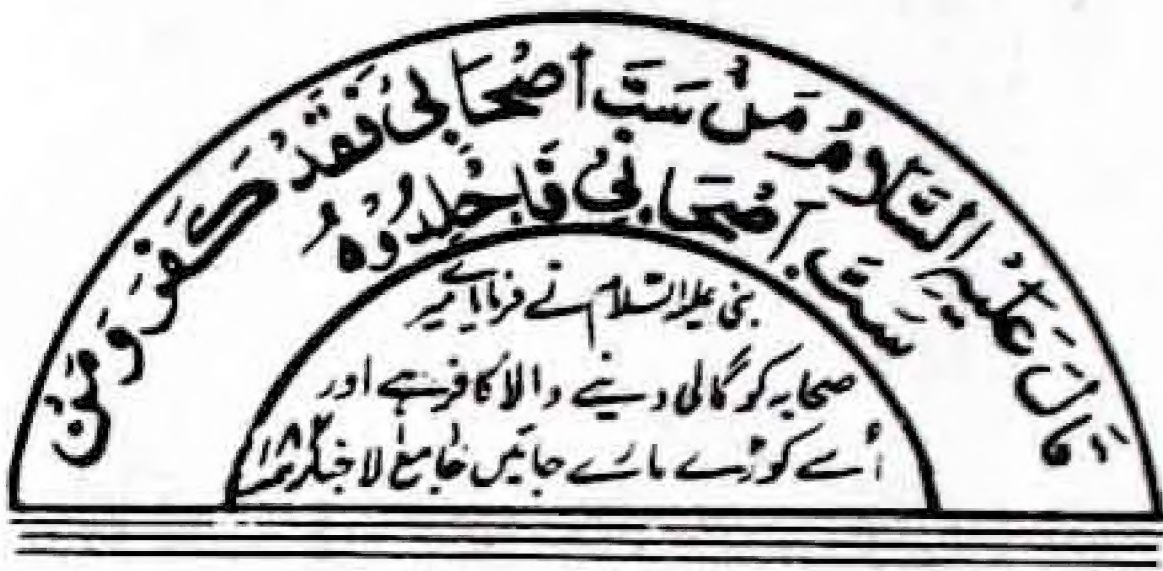 قَالَ عَلَيْهِ السَّلَامُ مَنْ سَبَّ اَصْحَابِىْ فَقَدْ كَفَرَ وَمَنْ
سَبَّ اَصْحَابِىْ فَاجْلِدُوْهُ
نبی علیہ السلام نے فرمایا میرے
صحابہ کو گالی دینے والا کافر ہے اور
اُسے کوڑے مارے جائیں جامع الاخبار